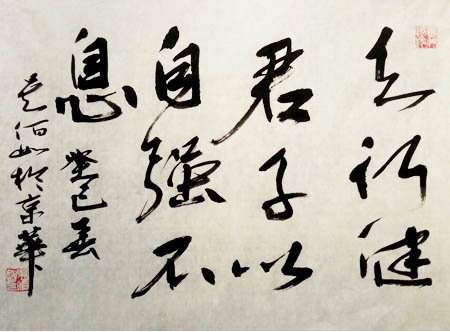 天行健
君子以
自强不
息 癸巳春
佰如於京華